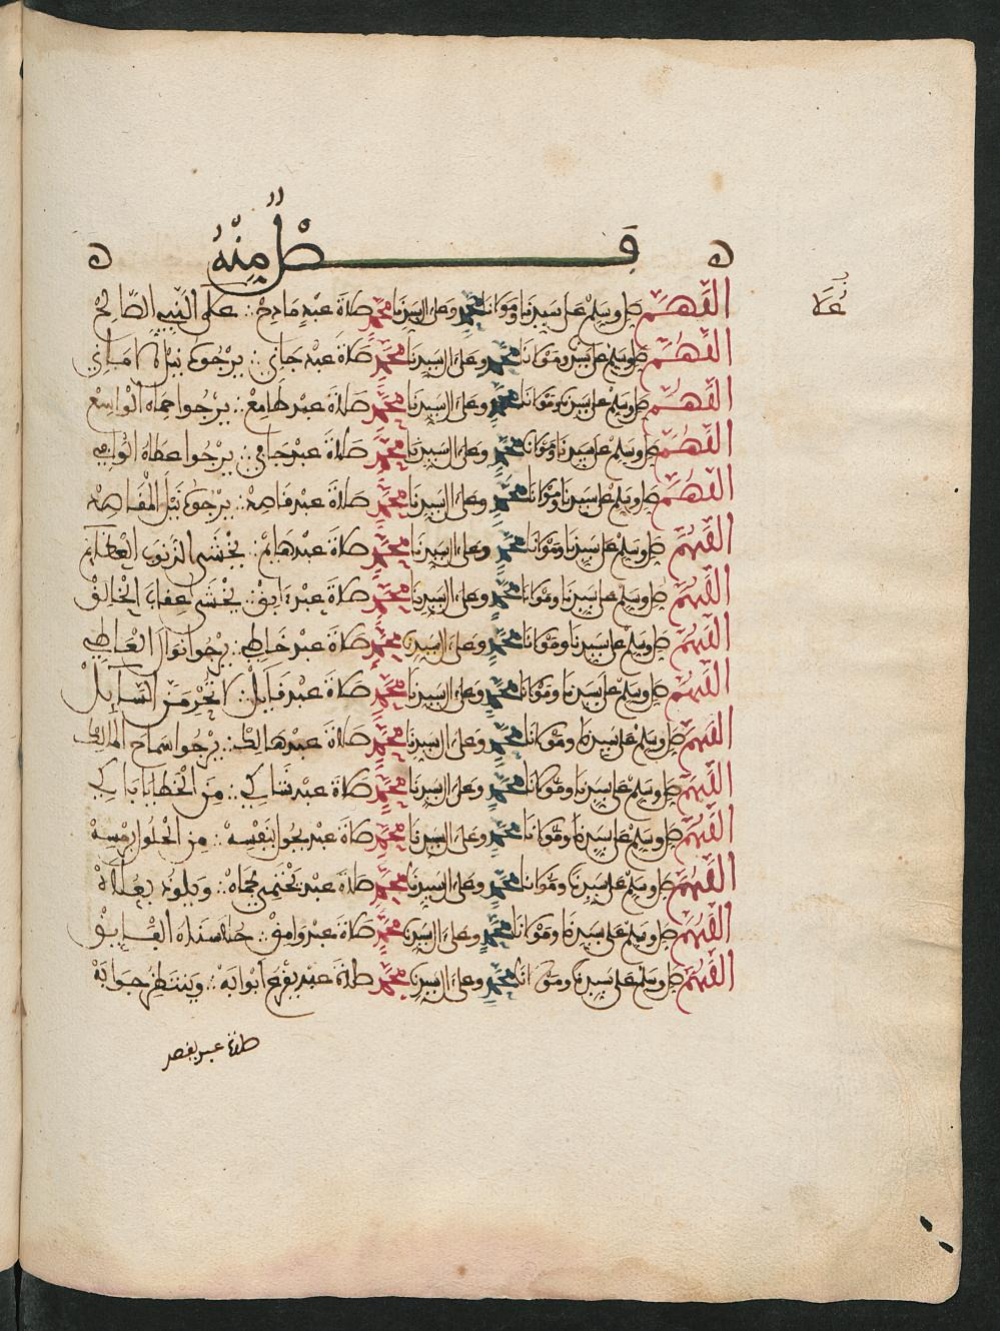 فصل منه
اللهم صل وسلم على سيدنا ومولانا محمد وعلى ءال سيدنا محمد صلاة عبد مادح ∴ على النبي الصالح
اللهم صل وسلم على سيدنا ومولانا محمد وعلى ءال سيدنا محمد صلاة عبد جاني ∴ يرجوك نيل الاماني
اللهم صل وسلم على سيدنا ومولانا محمد وعلى ءال سيدنا محمد صلاة عبد طامع ∴ يرجوا حماه الواسع
اللهم صل وسلم على سيدنا ومولانا محمد وعلى ءال سيدنا محمد صلاة عبد جافي ∴ يرجوا عطاه الوافي
اللهم صل وسلم على سيدنا ومولانا محمد وعلى ءال سيدنا محمد صلاة عبد قاصد ∴ يرجوك نيل المقاصد
اللهم صل وسلم على سيدنا ومولانا محمد وعلى ءال سيدنا محمد صلاة عبد هايم ∴ يخشى الذنوب العظايم
اللهم صل وسلم على سيدنا ومولانا محمد وعلى ءال سيدنا محمد صلاة عبد ءابق ∴ يخشى عقاب الخالق
اللهم صل وسلم على سيدنا ومولانا محمد وعلى ءال سيدنا محمد صلاة عبد خاطي ∴ يرجوا نوال العاطي
اللهم صل وسلم على سيدنا ومولانا محمد وعلى ءال سيدنا محمد صلاة عبد قايل ∴ لا تحرمن السايل
اللهم صل وسلم على سيدنا ومولانا محمد وعلى ءال سيدنا محمد صلاة عبد هالك ∴ يرجوا سماح المالك
اللهم صل وسلم على سيدنا ومولانا محمد وعلى ءال سيدنا محمد صلاة عبد شاكي ∴ من الخطايا باكي
اللهم صل وسلم على سيدنا ومولانا محمد وعلى ءال سيدنا محمد صلاة عبد يجول بنفسه ∴ من الحلول برمسه
اللهم صل وسلم على سيدنا ومولانا محمد وعلى ءال سيدنا محمد صلاة عبد يحتمي بحماه ∴ ويلوذ بعلاه
اللهم صل وسلم على سيدنا ومولانا محمد وعلى ءال سيدنا محمد صلاة عبد وامق ∴
اللهم صل وسلم على سيدنا ومولانا محمد وعلى ءال سيدنا محمد صلاة عبد يقرع أبوابه ∴ وينتظر جوابه
صلاة عبد يقصد